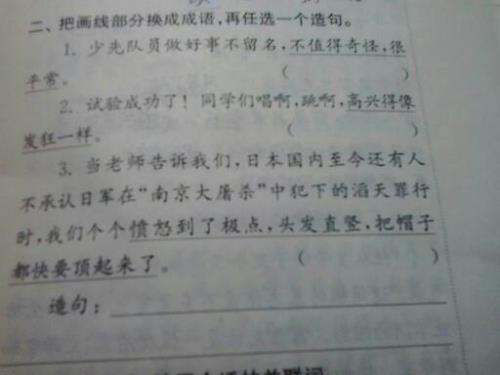 二、把画线部分换成成语,再任选一个造句。
1. 少先队员做好事不留名,不值得奇怪,很
平常。 ( )
2. 试验成功了!同学们唱啊,跳啊,高兴得像
发狂一样。 ( )
3. 当老师告诉我们,日本国内至今还有人
不承认日军在“南京大屠杀”中犯下的滔天罪行
时,我们个个愤怒到了极点,头发直竖,把帽子
都快要顶起来了。 ( )
造句: